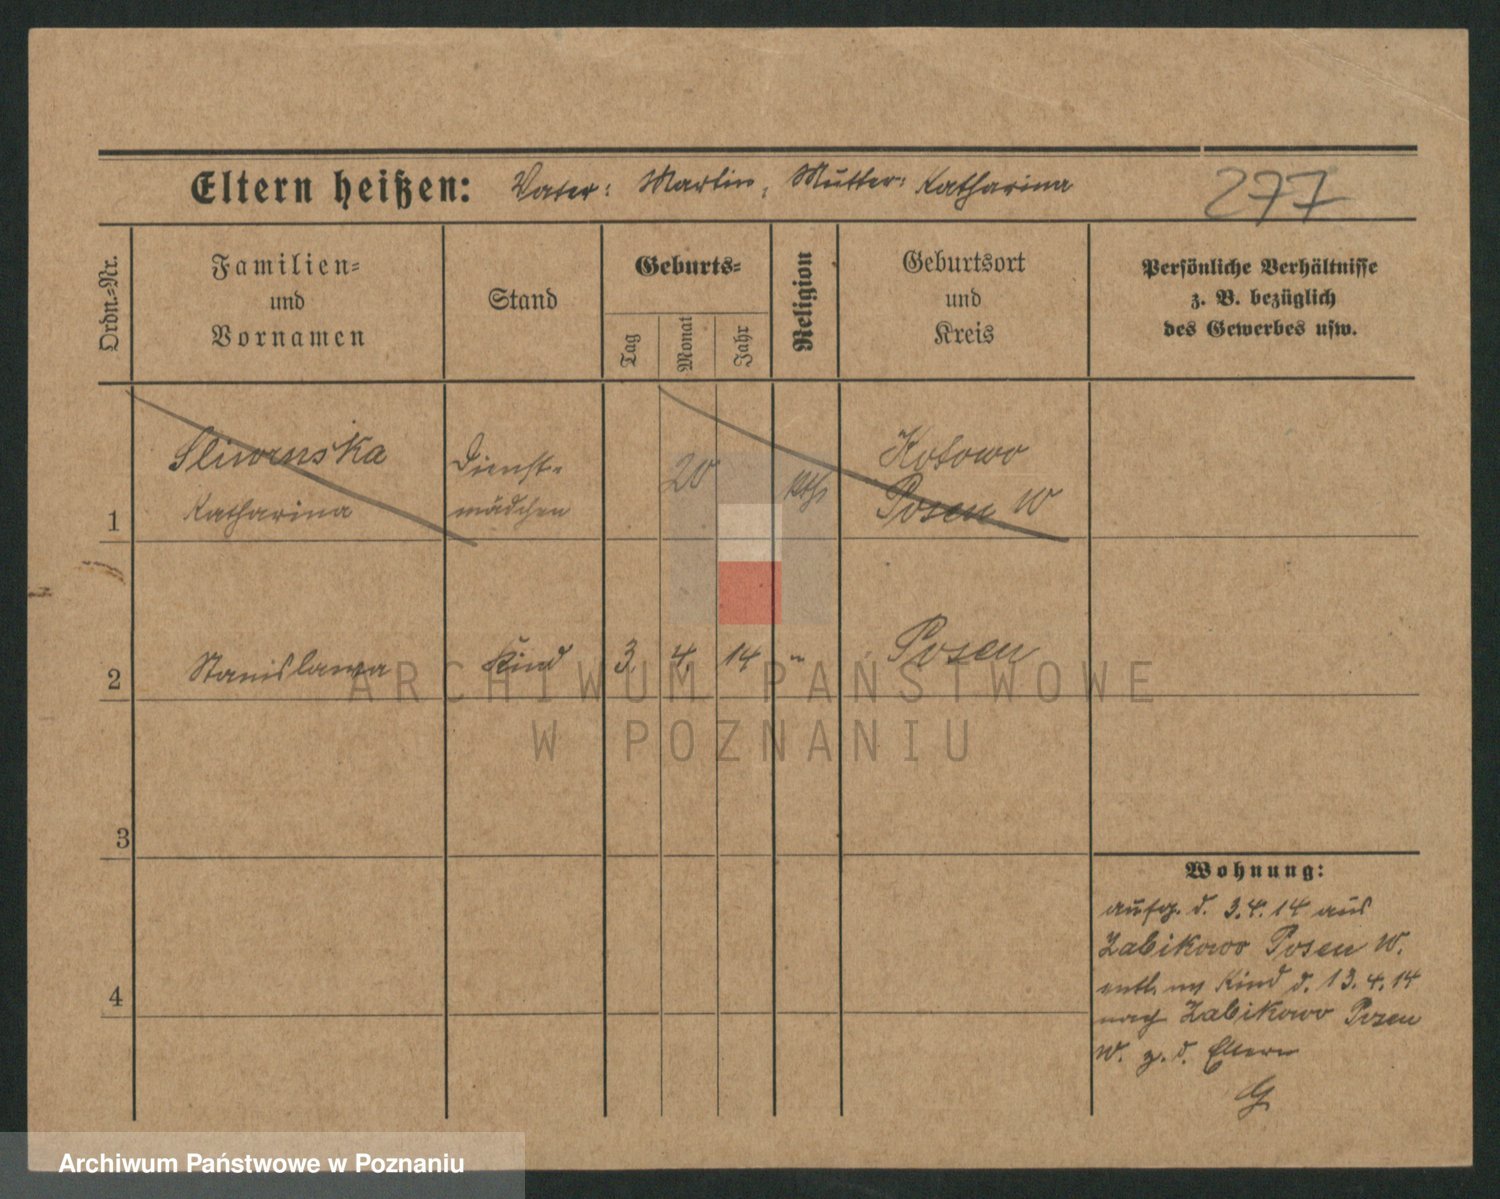 Eltern heißen: Vater: Martin, Mutter: Katharina
277
Ordn.-Nr.
Familien-
und
Vornamen
Stand
Geburts-
Tag
Monat
Jahr
Religion
Geburtsort
und
Kreis
Persönliche Verhältnisse
z. B. bezüglich
des Gewerbes usw.
1
Sliwinska
Katharina
Dienst-
mädchen
20
kth.
Kotowo
Posen W
2
Stanislawa
Kind
3.
4.
14
"
Posen
ARCHIWUM PAŃSTWOWE
W POZNANIU
3
4
Wohnung:
aufg. d. 3.4.14 aus
Zabikowo Posen W.
entl. m Kind d. 13.4.14
nach Zabikowo Posen
W. z. d. Eltern
G
Archiwum Państwowe w Poznaniu